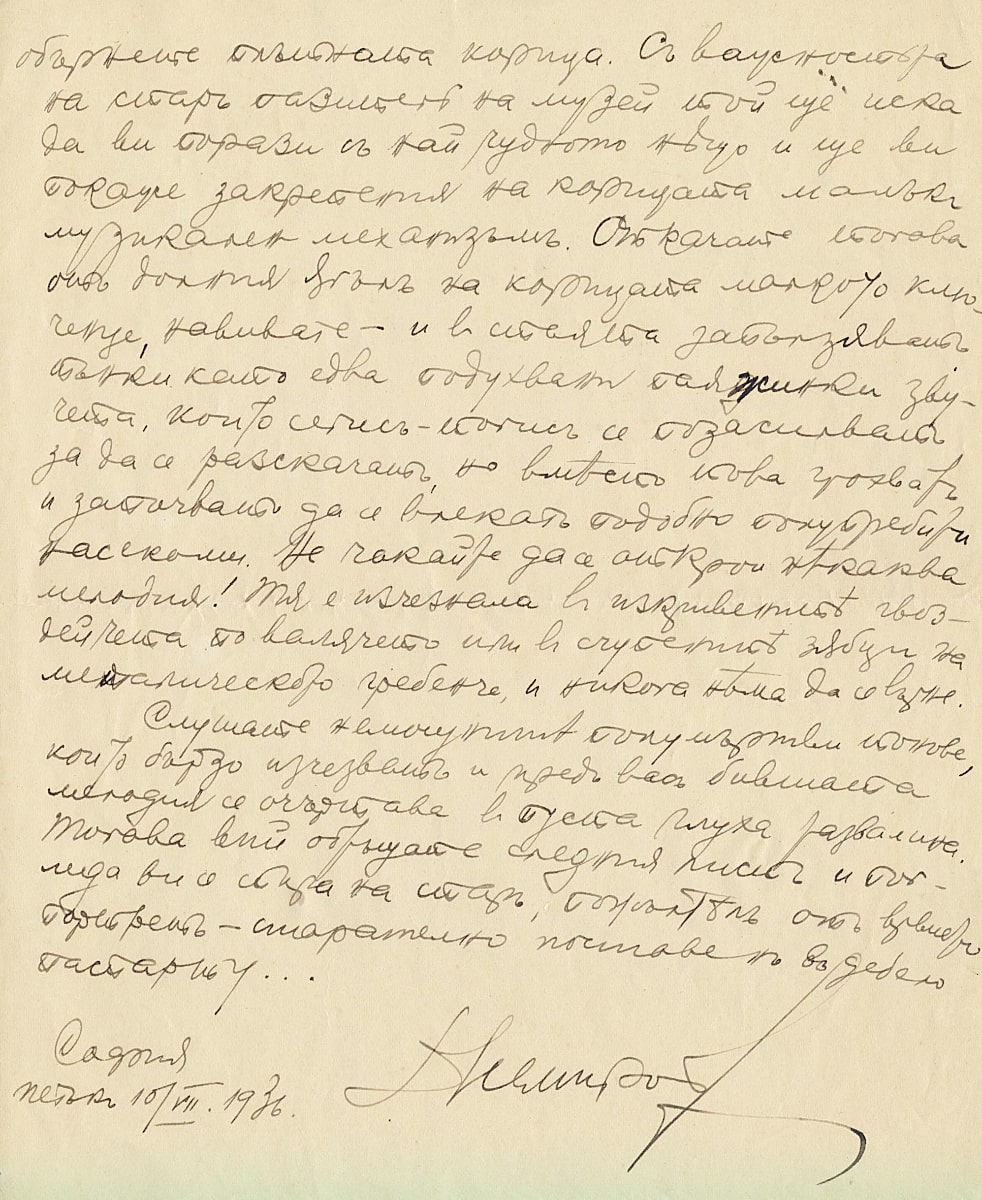 обърнете плътната корица. Съ вкусностьта
на старъ пазитель на музей той ще иска
да ви порази съ най чудното нѣщо и ще ви
покаже закрепения на корицата малъкъ
музикаленъ механизъмъ. Откачате тогава
отъ долния ѫгълъ на корицата малкото клю-
ченце, навивате – и в стаята запълзяватъ
тънки като едва подухвани паяжинки зву-
чета, които сегисъ-тогисъ се позасилватъ
за да се разскачатъ, но вмѣсто това грохватъ
и започватъ да се влекатъ подобно полупребити
насекоми. Не чакайте да се открои нѣкаква
мелодия! Тя е изчезнала в изкривенитѣ гвоз-
дейчета по валячето или в счупенитѣ зѫбци на
металическото гребенче, и никога нѣма да се върне.
Слушате немощнитѣ полумъртви тонове,
които бързо изчезватъ и предъ васъ бившата
мелодия се очъртава в пуста глуха развалина.
Тогава вий обръщате следния листъ и пог-
леда ви се спира на старъ, пожълтѣлъ отъ времето
портретъ – старателно поставенъ въ дебело
паспарту...
София
петъкъ 10/VII. 1936.
Н Райновъ